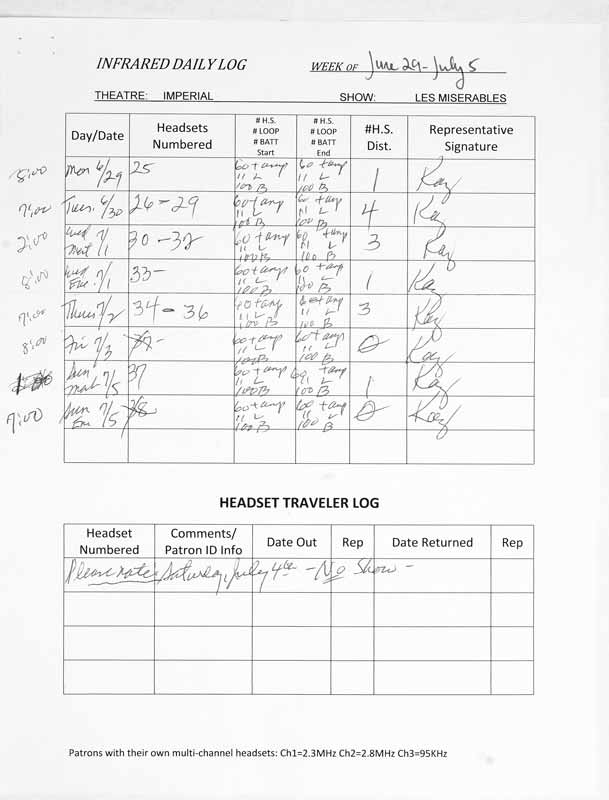 INFRARED DAILY LOG WEEK OF June 29-July 5
THEATRE: IMPERIAL SHOW: LES MISERABLES
Day/Date Headsets Numbered # H.S. # LOOP # BATT Start # H.S. # LOOP # BATT End #H.S. Dist. Representative Signature
8:00 Mon 6/29 25 60 + amp 11 L 100 B 60 + amp 11 L 100 B 1 Kay
7:00 Tues. 6/30 26 - 29 60 + amp 11 L 100 B 60 + amp 11 L 100 B 4 Kay
2:00 Wed Mat 7/1 30 - 32 60 + amp 11 L 100 B 60 + amp 11 L 100 B 3 Kay
8:00 Wed Eve. 7/1 33- 60 + amp 11 L 100 B 60 + amp 11 L 100 B 1 Kay
7:00 Thurs 7/2 34 - 36 60 + amp 11 L 100 B 60 + amp 11 L 100 B 3 Kay
8:00 Fri 7/3 37- 60 + amp 11 L 100 B 60 + amp 11 L 100 B 0 Kay
Sun Mat 7/5 37 60 + amp 11 L 100 B 60 + amp 11 L 100 B 1 Kay
7:00 Sun Eve 7/5 38 60 + amp 11 L 100 B 60 + amp 11 L 100 B 0 Kay
HEADSET TRAVELER LOG
Headset Numbered Comments/ Patron ID Info Date Out Rep Date Returned Rep
Please note: Saturday, July 4th - No Show -
Patrons with their own multi-channel headsets: Ch1=2.3MHz Ch2=2.8MHz Ch3=95KHz